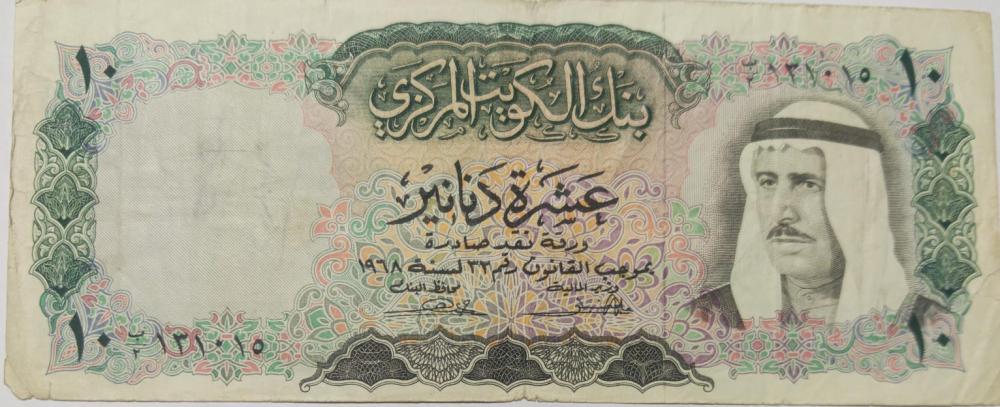 ١٠ ب/٢ ١٣١٠١٥ ١٠
بنك الكويت المركزي
عشرة دنانير
ورقة نقد صادرة
بموجب القانون رقم ٣٢ لسنة ١٩٦٨
وزير المالية محافظ البنك
١٠ ب/٢ ١٣١٠١٥ ١٠